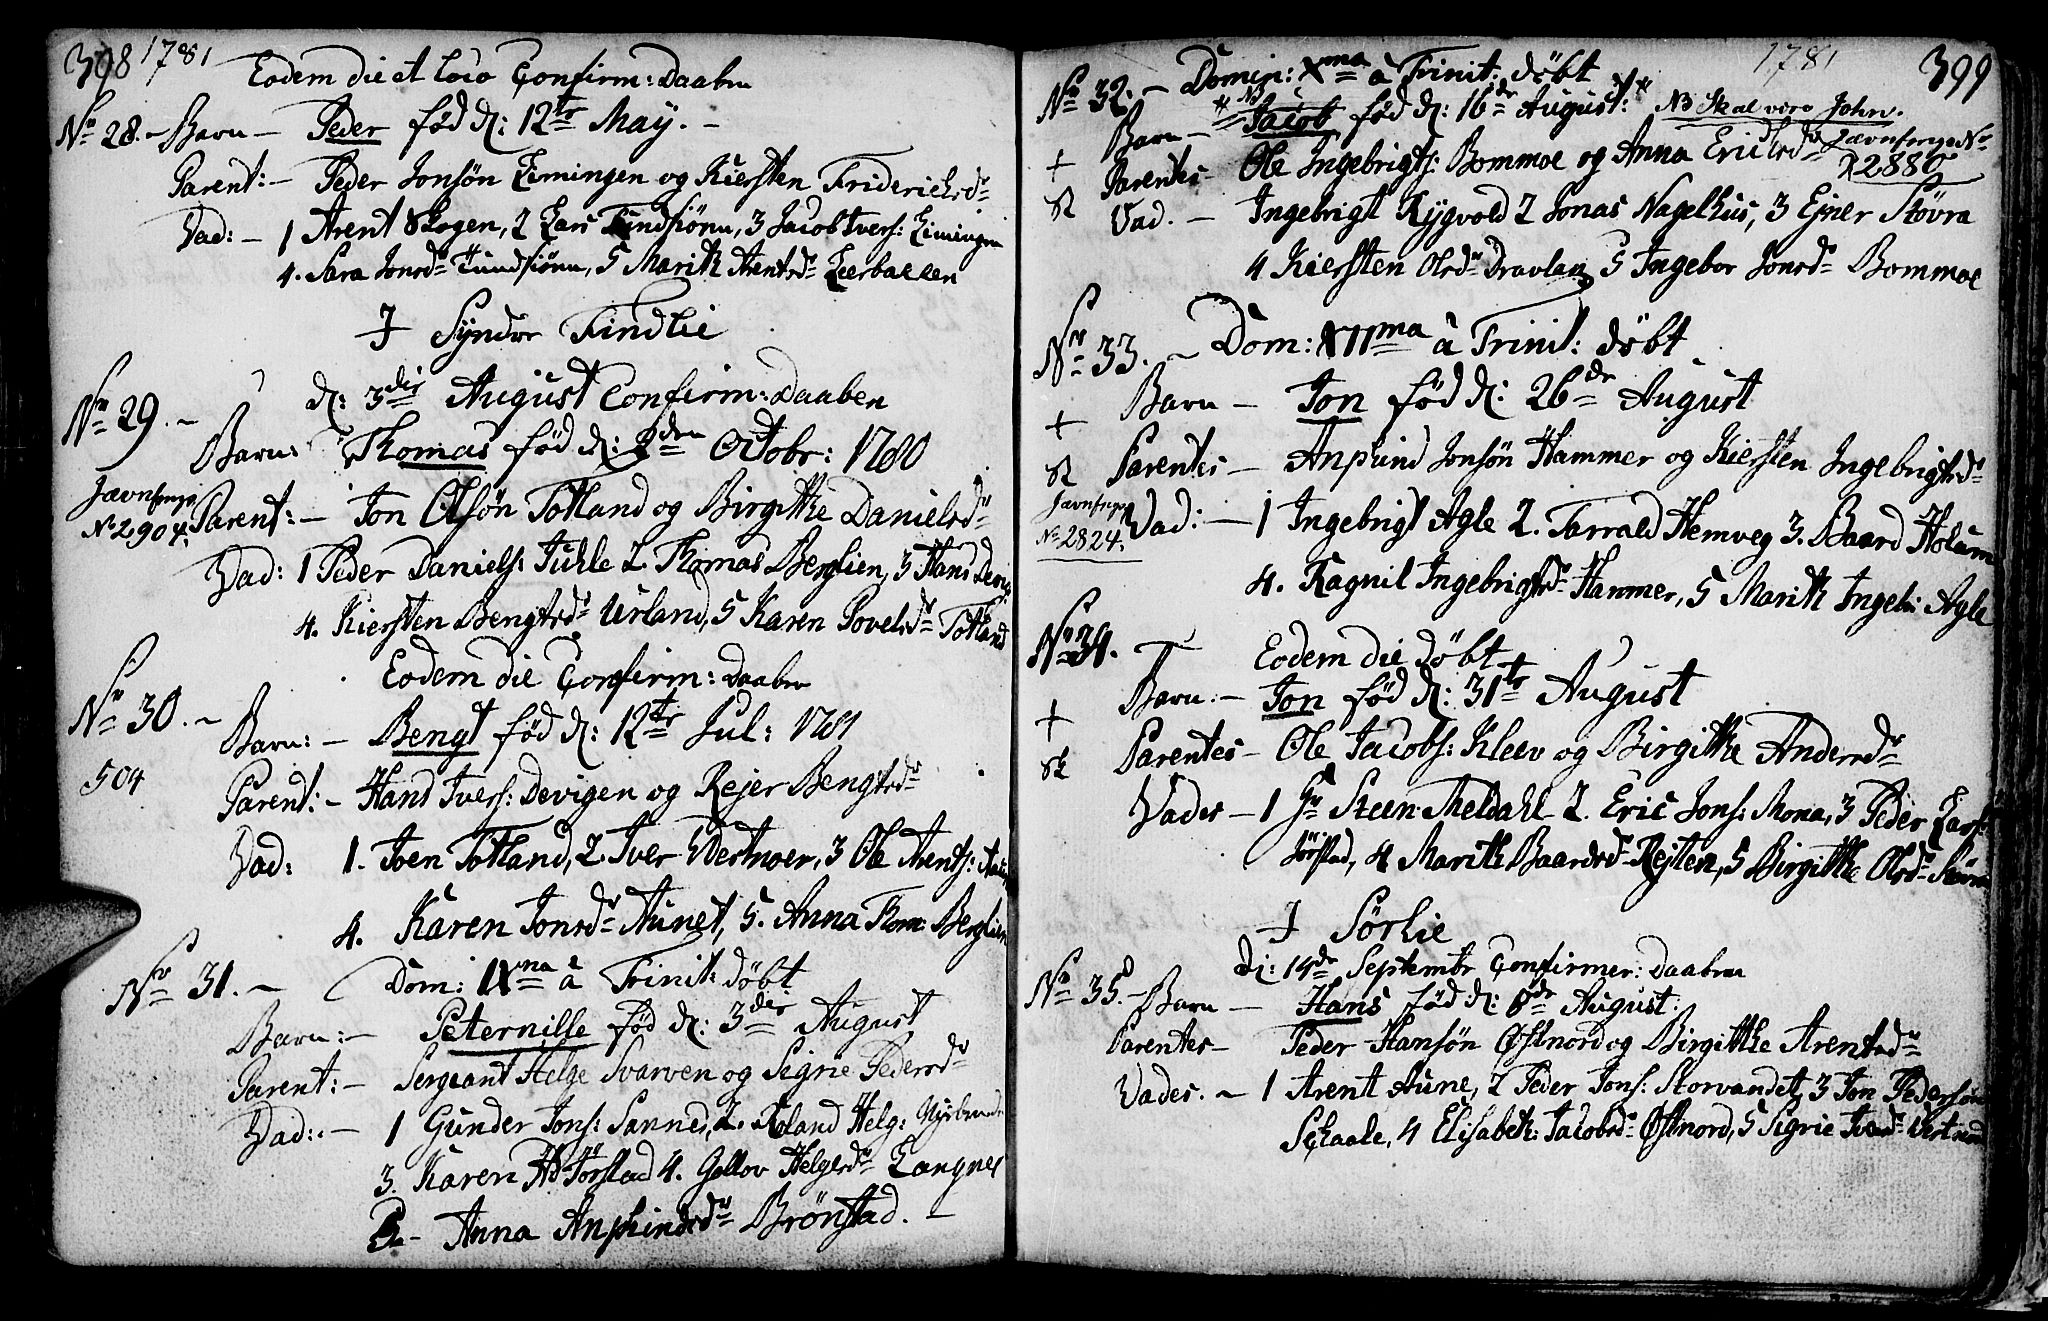 398 1781
Eodem die et loco Confirm: Daaben
No 28. – Barn – Peder fød d: 12te May. –
Parent: – Peder Jonsön Limingen og Kiersten Friderichsdr
Vad: – 1 Arent Skogen, 2 Lars Tundsiönn, 3 Jacob Ivers: Limingen
4. Sara Jonsdr Tundsiönn, 5 Marith Arentsdr Leerbakken
I Syndre Findlie
No 29. – d: 3die August Confirm: Daaben
Barn: Thomas fød d: 2den Octobr: 1780
Jævnfenge No 2904.
Parent: – Jon Olsön Totland og Birgitthe Danielsdr
Vad: 1 Peder Daniels: Juhle 2 Thomas Berglien, 3 Hans Devig
4. Kiersten Bengtsdr Urland, 5 Karen Povelsdr Totland
Eodem die Confirm: Daaben
No 30. –
Barn: – Bengt fød d: 12te Jul: 1781
504
Parent: – Hans Ivers: Devigen og Rejer Bengtsdr
Vad: 1. Joen Totland, 2 Iver Westnoer, 3 Ole Arents:
4. Karen Jonsdr Aunet, 5. Anna Thom: Berglien
No 31. – Dom: IXna à Trinit: döbt
Barn: – Peternille fød d: 3die August
Parent: – Sergeant Helge Svarven og Signe Pedersdr
Vad: – 1 Gunder Jons: Sannes, 2. Roland Helg:
3. Karen Jörstad 4. Gollov Helgesdr Langnes
5 – Anna Anphindsdr Brönstad. –
1781 399
No 32. – Domin: Xma à Trinit: döbt
Barn – NB Jacob fød d: 16de August: NB Skal være John.
Jævnfenge No 2880
Parentes Ole Ingebrigts: Bommoe og Anna Ericksdr
Vad. – Ingebrigt Rygvold 2 Jonas Nagelhus, 3 Ejner Stövra
4 Kiersten Olsdr Dravlan 5 Ingebor Jonsdr Bommoe
No 33. – Dom: XIIma à Trinit: döbt
Barn – Jon fød d: 26de August
Parentes – Anphind Jonsön Hammer og Kiersten Ingebrigtsdr
Jævnfenge No 2824.
Vad: – 1 Ingebrigt Agle 2. Tarrald Hemveg 3. Baard Holum
4. Ragnil Ingebrigtsdr Hammer, 5 Marith Ingebr: Agle
No 34. – Eodem die döbt
Barn. – Jon fød d: 31te August
Parentes – Ole Jacobs: Kleev og Birgitthe Andersdr
Vades – 1 Hr Steen Meldahl 2. Eric Jons: Mona, 3 Peder Lars:
Jörstad, 4 Marith Baardsdr Rejten, 5 Birgitthe Olsdr
I Sörlie
No 35. – d: 14de Septembr Confirmer: Daaben
Barn – Hans fød d: 8de August:
Parentes – Peder Hansön Østnord og Birgitthe Arentsdr
Vades. – 1 Arent Aune, 2 Peder Jons: Storvandet, 3 Jon Pedersön
Schaale, 4 Elisabeth: Jacobsdr Østnord, 5 Sigrie Ivarsdr Vestnord